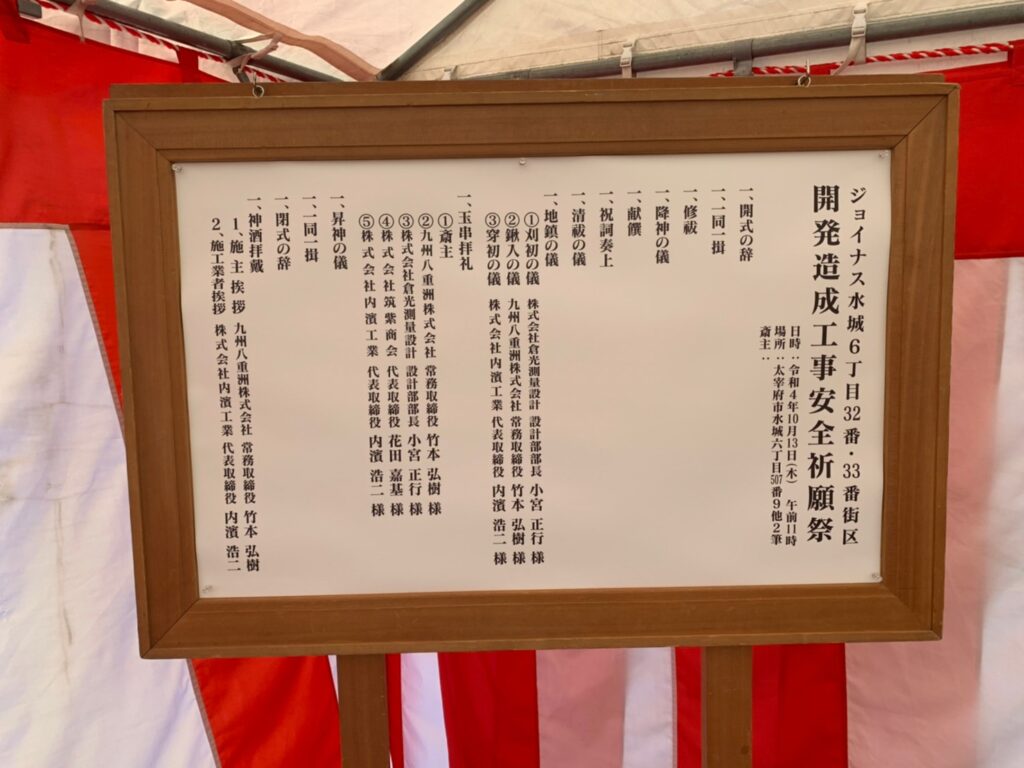 ジョイナス水城6丁目32番・33番街区
開発造成工事安全祈願祭
日時：令和4年10月13日(木) 午前11時
場所：太宰府市水城六丁目507番9他2筆
斎主：
一、開式の辞
一、一同一揖
一、修祓
一、降神の儀
一、献饌
一、祝詞奏上
一、清祓の儀
一、地鎮の儀
①刈初の儀 株式会社倉光測量設計 設計部部長 小宮 正行 様
②鍬入の儀 九州八重洲株式会社 常務取締役 竹本 弘樹 様
③穿初の儀 株式会社内濱工業 代表取締役 内濱 浩二 様
一、玉串拝礼
①斎主
②九州八重洲株式会社 常務取締役 竹本 弘樹 様
③株式会社倉光測量設計 設計部部長 小宮 正行 様
④株式会社筑紫商会 代表取締役 花田 嘉基 様
⑤株式会社内濱工業 代表取締役 内濱 浩二 様
一、昇神の儀
一、一同一揖
一、閉式の辞
一、神酒拝戴
1、施主挨拶 九州八重洲株式会社 常務取締役 竹本 弘樹
2、施工業者挨拶 株式会社内濱工業 代表取締役 内濱 浩二